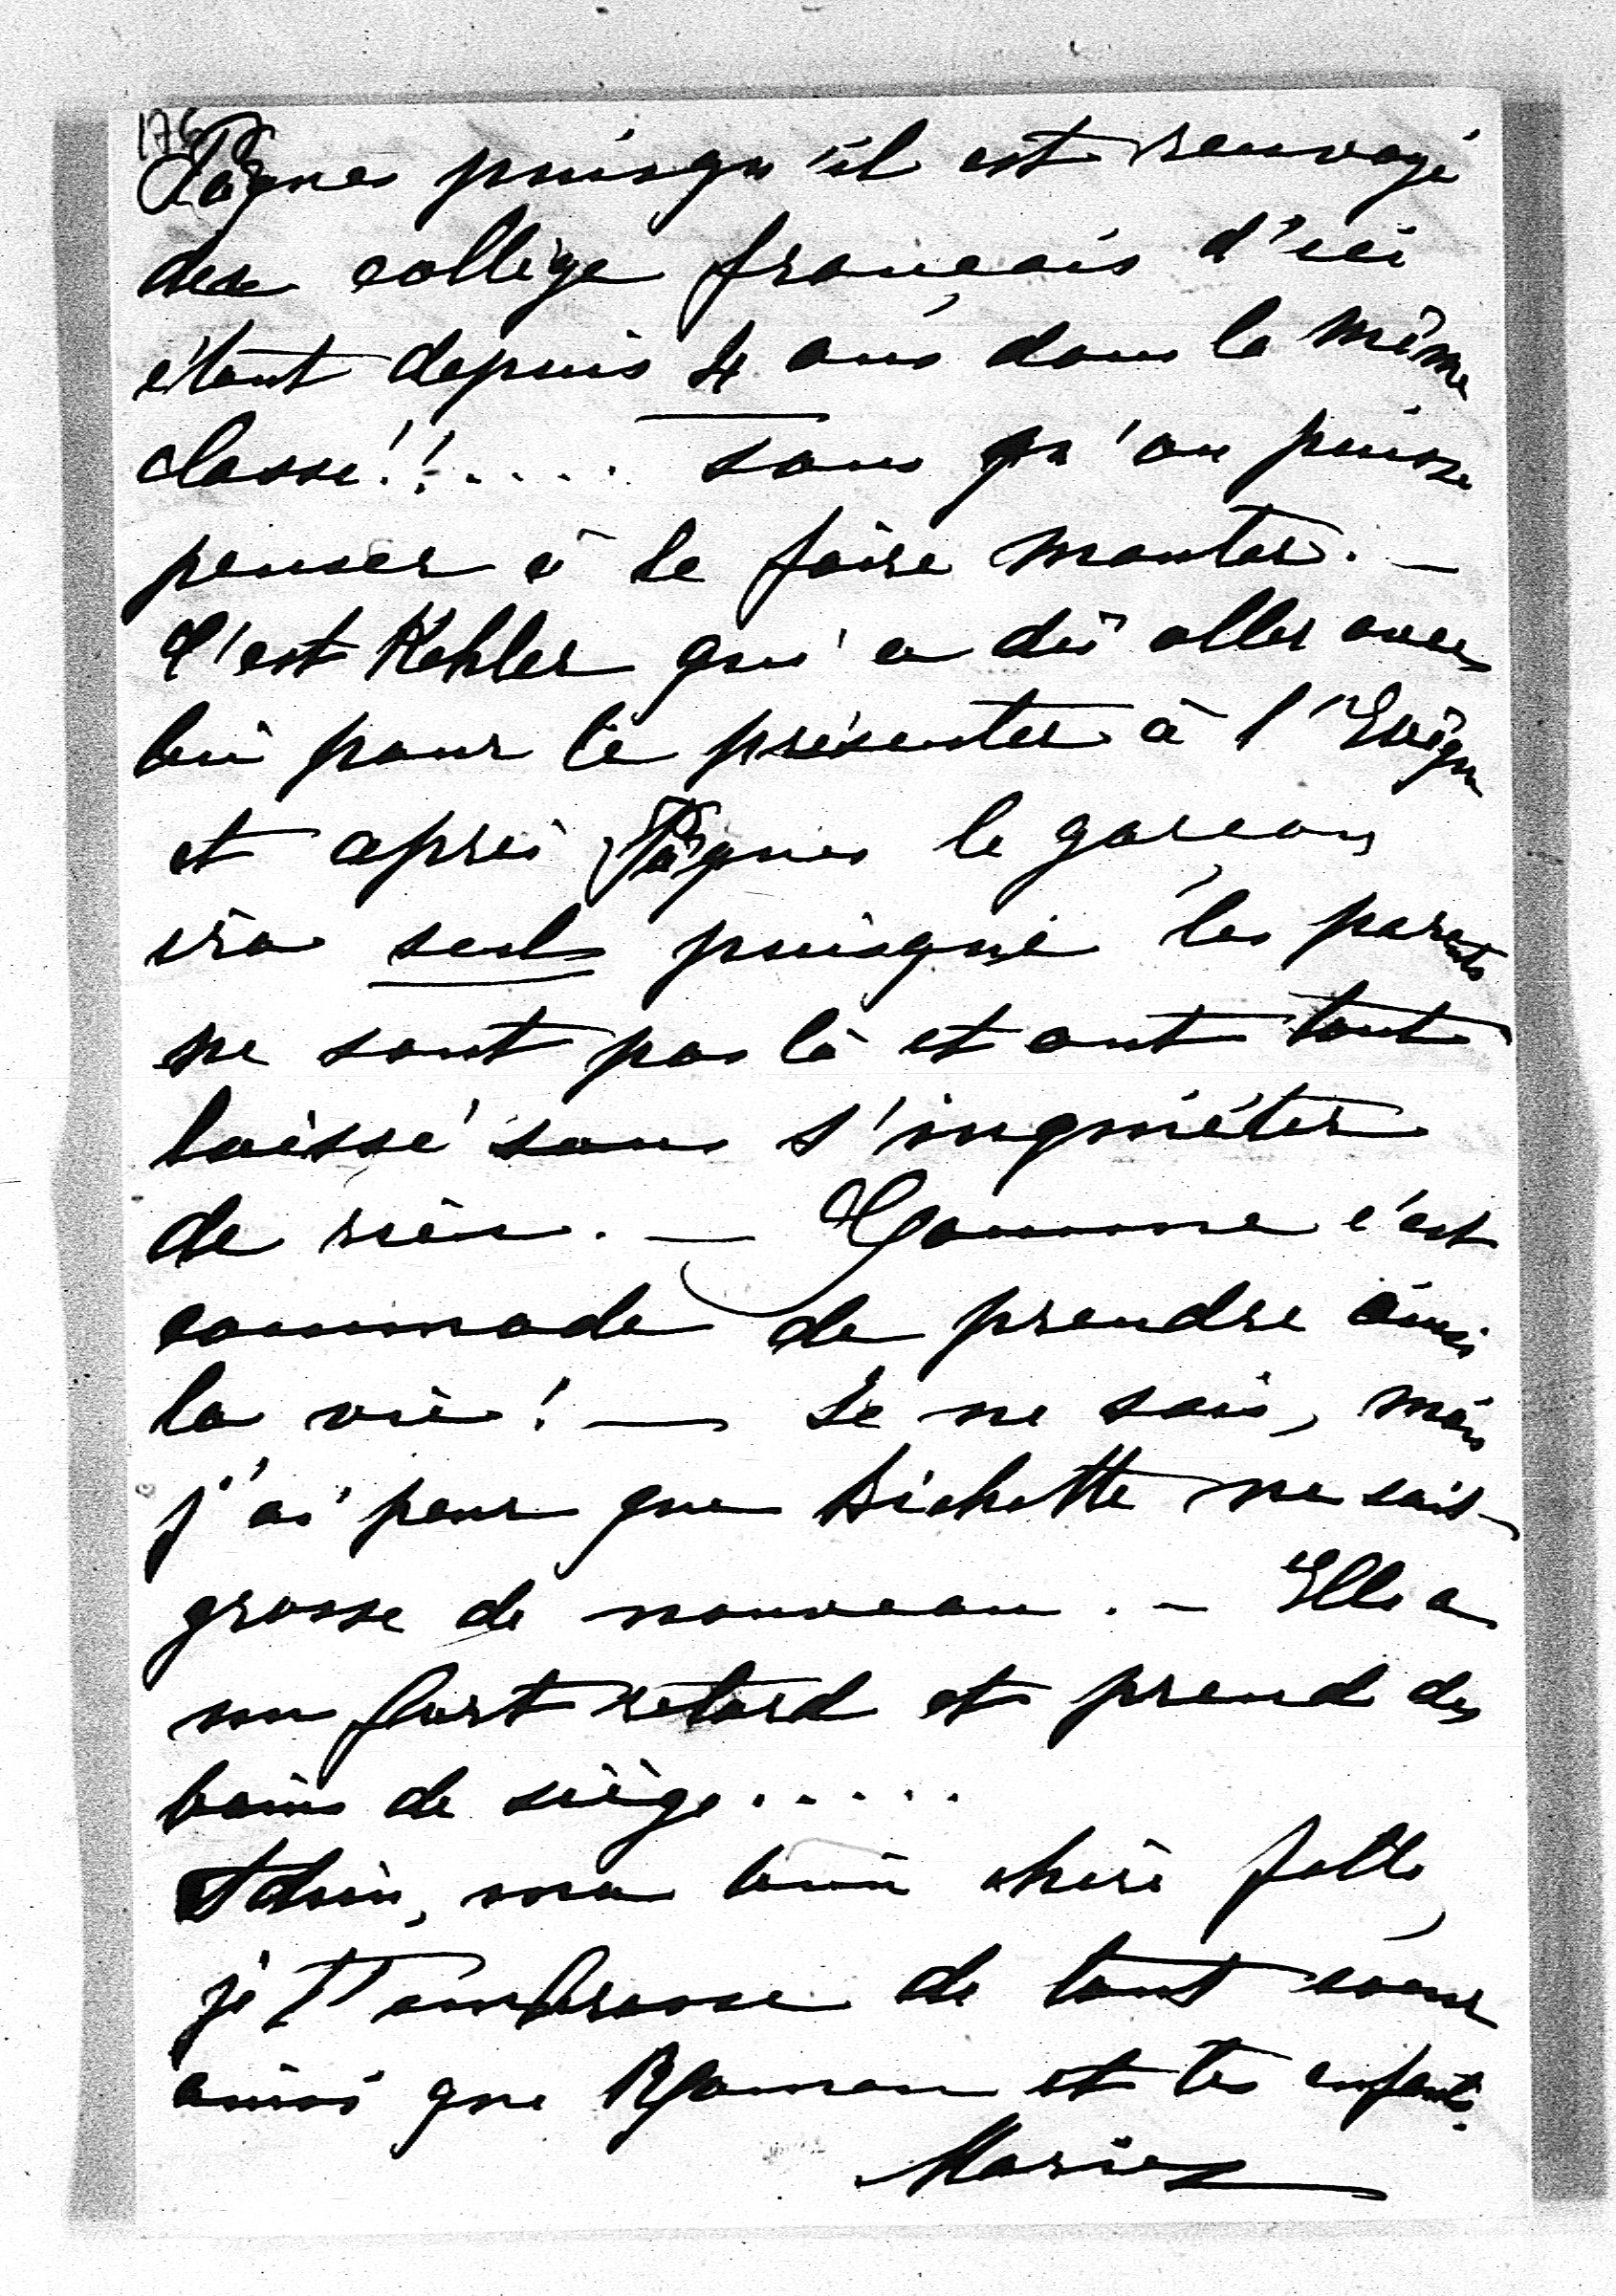 176
Pâques puisqu'il est renvoyé
du collège français d'ici
étant depuis 4 ans dans la même
classe!!..... sans qu'on puisse
penser à le faire monter. —
C'est Kohler qui a dû aller avec
lui pour le présenter à l'Evêque
et après Pâques le garçon
ira seul puisque les parents
ne sont pas là et ont tout
laissé sans s'inquiéter
de rien. — Comme c'est
commode de prendre ainsi
la vie! — Je ne sais, mais
j'ai peur que Bichette ne soit
grosse de nouveau. — Elle a
un fort retard et prend des
bains de siège.....
Adieu, ma bien chère fille,
je t'embrasse de tout cœur
ainsi que Maman et tes enfants.
Marie